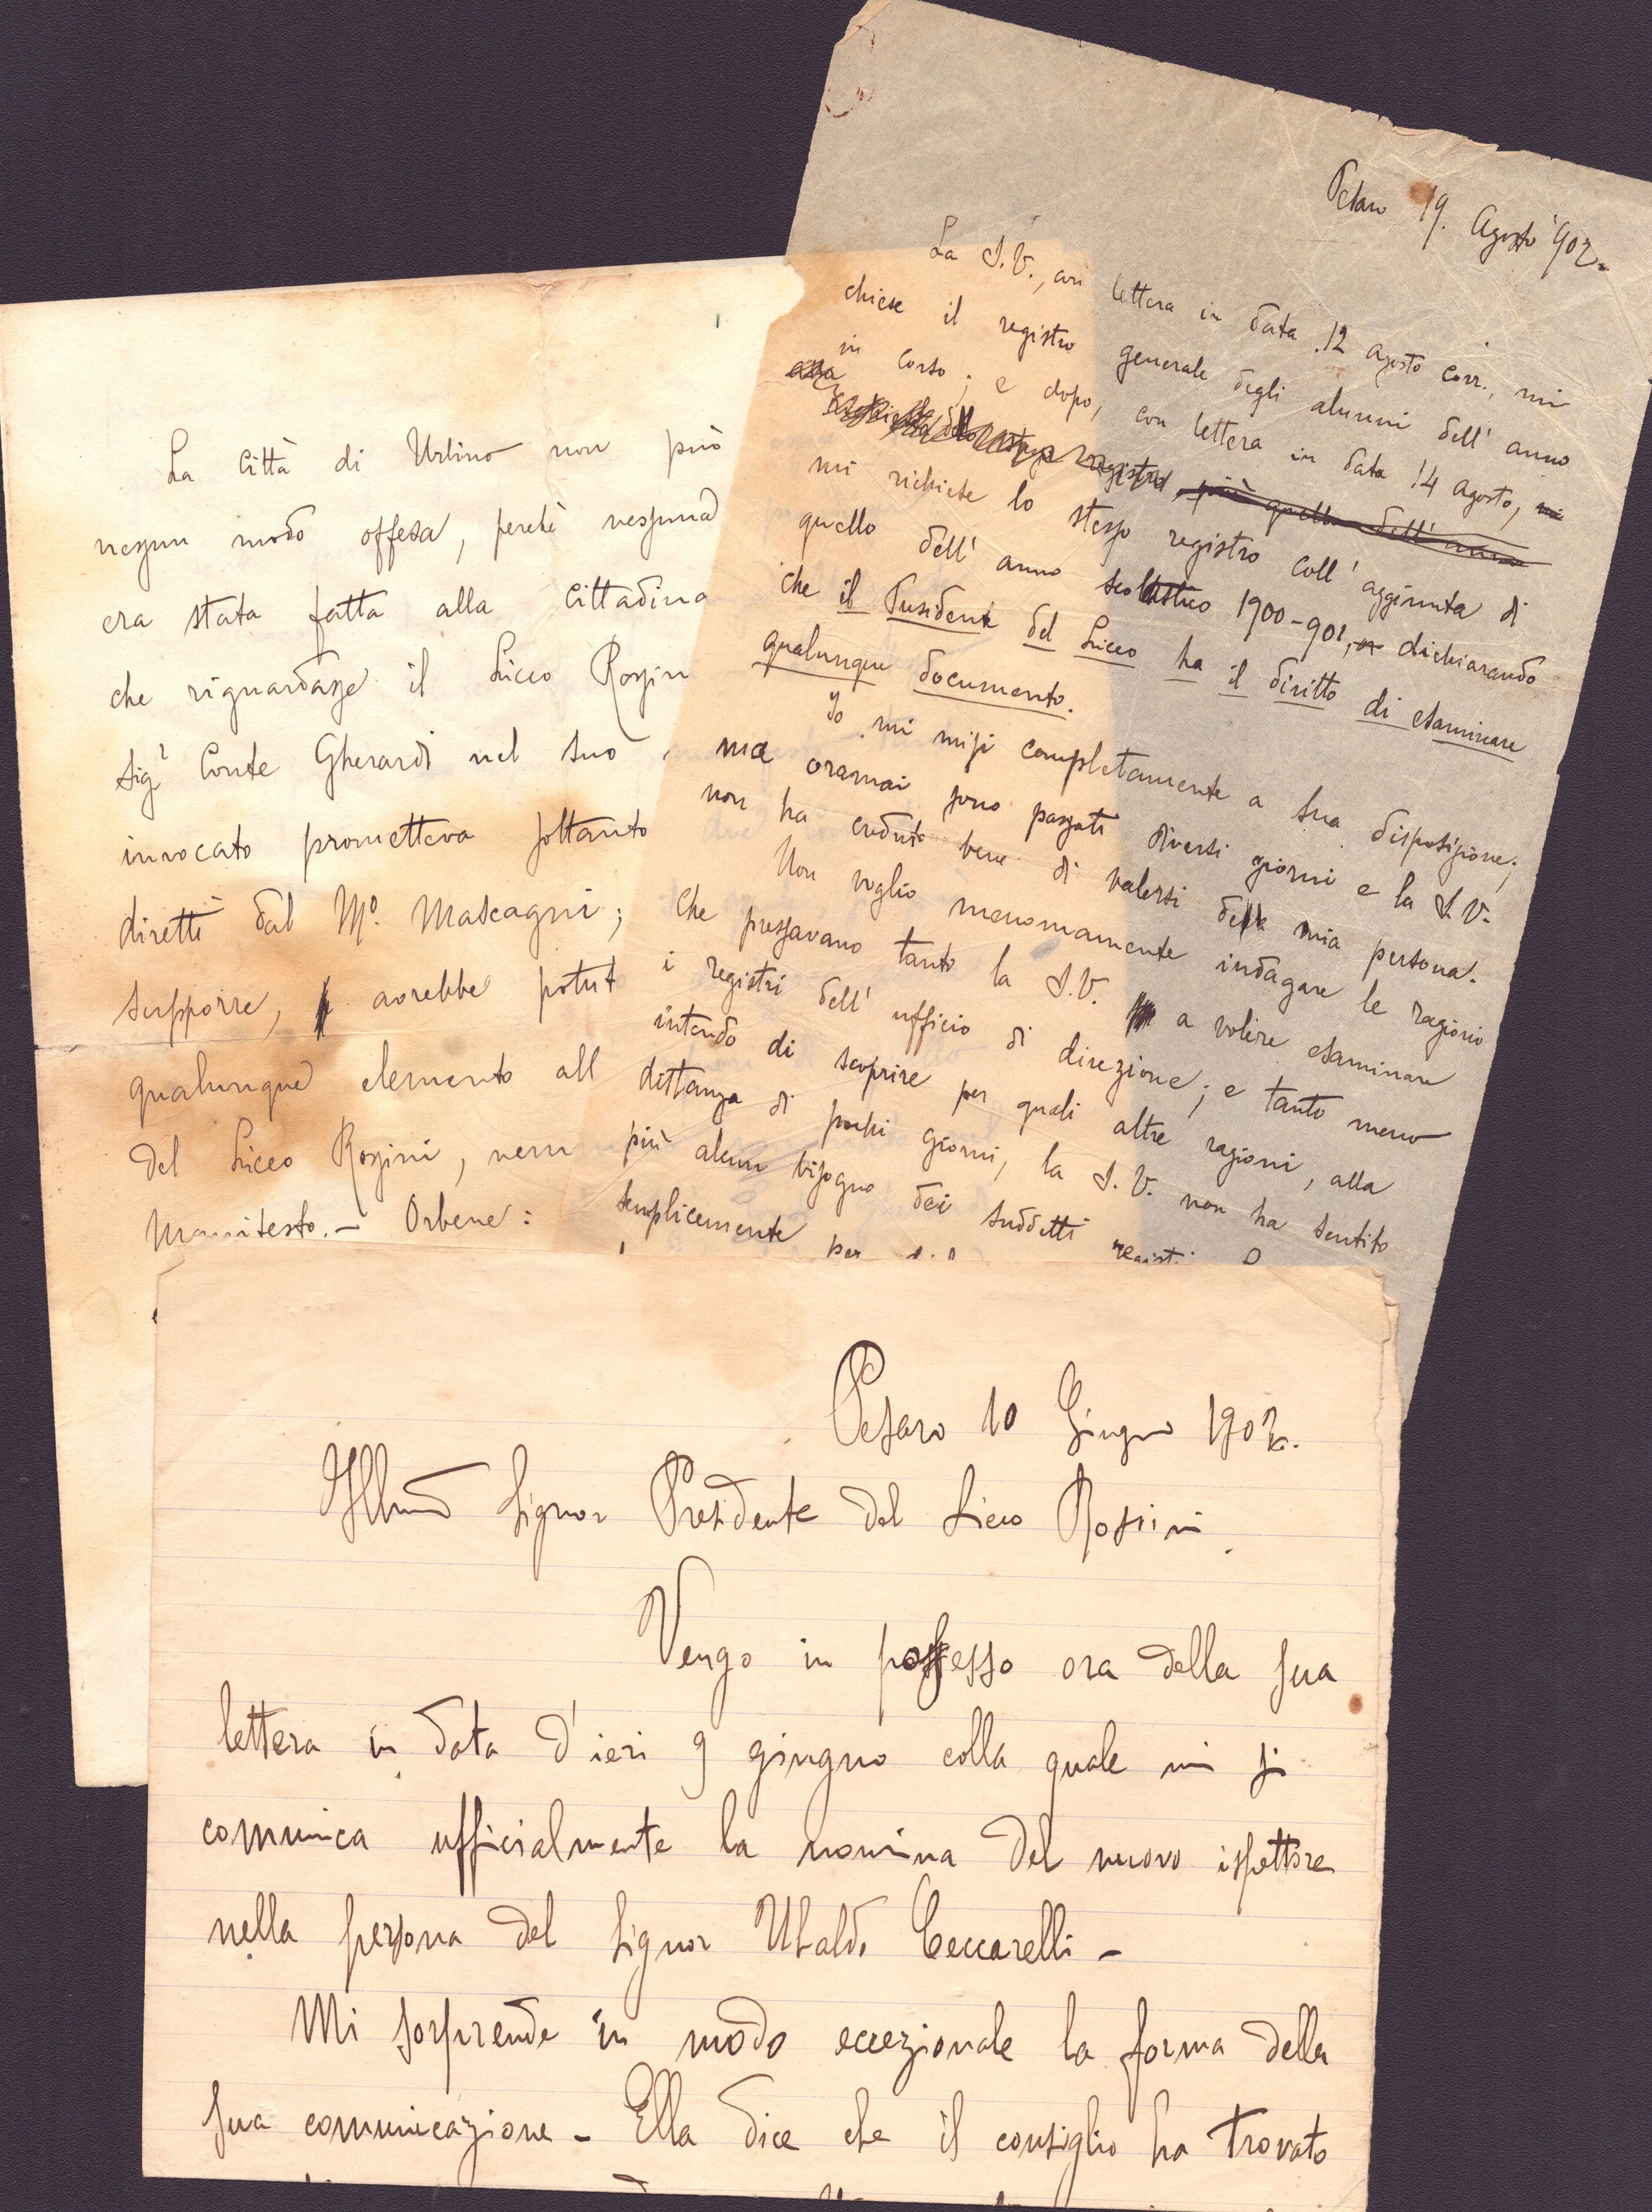 La Città di Urbino non può
nessun modo offesa, perchè nessuna
era stata fatta alla cittadina
che riguardasse il Liceo Rossin
Sigr Conte Gherardi nel suo
invocato prometteva soltanto
diretti dal Mo. Mascagni;
supporre, avrebbe potut
qualunque elemento all
del Liceo Rossini, nem
Manifesto. – Orbene:
Pesaro 19. Agosto '902.
La S.V., con lettera in data 12 agosto corr., mi
chiese il registro generale degli alunni dell' anno
in corso; e dopo, con lettera in data 14 agosto, mi
registro, più quello dell' anno
mi richiese lo stesso registro coll' aggiunta di
quello dell' anno scolastico 1900-901, dichiarando
che il Presidente del Liceo ha il diritto di esaminare
qualunque documento.
Io mi misi completamente a sua disposizione;
ma oramai sono passati diversi giorni e la S.V.
non ha creduto bene di valersi della mia persona.
Non voglio menomamente indagare le ragioni
che pressavano tanto la S.V. a volere esaminare
i registri dell' ufficio di direzione; e tanto meno
intendo di scoprire per quali altre ragioni, alla
distanza di pochi giorni, la S.V. non ha sentito
più alcun bisogno dei suddetti registri
semplicemente per
Pesaro 10 Giugno 1902.
Illmo Signor Presidente del Liceo Rossini
Vengo in possesso ora della sua
lettera in data d'ieri 9 giugno colla quale mi si
comunica ufficialmente la nomina del nuovo ispettore
nella persona del Signor Ubaldo Ceccarelli –
Mi sorprende in modo eccezionale la forma della
sua comunicazione – Ella dice che il consiglio ha trovato